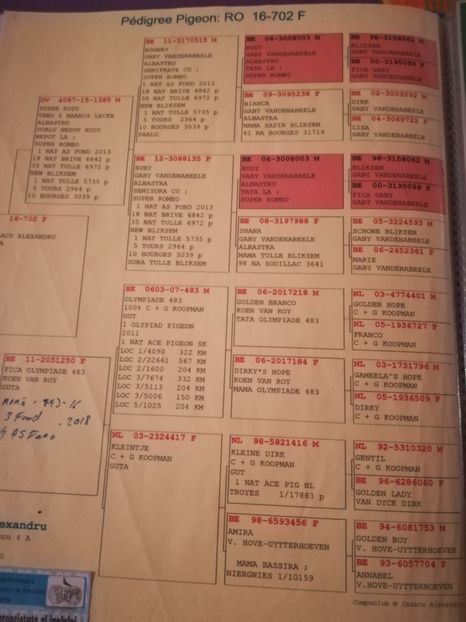 Pédigree Pigeon: RO 16-702 F
16-702 F
DV 4087-15-1385 M
SUPER RUDY
ALBASTRU
DUBLU NEPOT RUDY
NEPOT LA :
SUPER ROMEO
1 NAT AS FOND 2013
18 NAT BRIVE 6842 p
35 NAT TULLE 6972 p
NEW BLIKSEM
1 NAT TULLE 5735 p
5 TOURS 2964 p
10 BOURGES 3039 p
BE 11-2051250 F
FICA OLYMPIADE 483
KOEN VAN ROY
GUTA
3 Fond
2018
BE 11-3170515 M
ROONEY
GABY VANDENABEELE
ALBASTRU
SEMIFRATE CU :
SUPER ROMEO
1 NAT AS FOND 2013
18 NAT BRIVE 6842 p
35 NAT TULLE 6972 p
NEW BLIKSEM
1 NAT TULLE 5735 p
5 TOURS 2964 p
10 BOURGES 3039 p
PABLO
BE 12-3088135 F
RUBY
GABY VANDENABEELE
ALBASTRA
SEMISORA CU :
SUPER ROMEO
1 NAT AS FOND 2013
18 NAT BRIVE 6842 p
35 NAT TULLE 6972 p
NEW BLIKSEM
1 NAT TULLE 5735 p
5 TOURS 2964 p
10 BOURGES 3039 p
SORA TULLE BLIKSEM
SK 0603-07-483 M
OLYMPIADE 483
100% C + G KOOPMAN
GUT
1 OLYPIAD PIGEON
2011
1 NAT ACE PIGEON SK
LOC 1/4090 322 KM
LOC 2/22661 567 KM
LOC 2/1600 204 KM
LOC 3/7674 332 KM
LOC 3/5113 204 KM
LOC 3/5006 150 KM
LOC 5/1025 204 KM
NL 03-2324417 F
KLEINTJE
C + G KOOPMAN
GUTA
BE 06-3008003 M
RUDY
GABY VANDENABEELE
ALBASTRU
TATA LA :
SUPER ROMEO
BE 09-3095238 F
BIANCA
GABY VANDENABEELE
ALBASTRU
MAMA SAFIR BLIKSEM
61 NA BOURGES 31719
BE 06-3008003 M
RUDY
GABY VANDENABEELE
ALBASTRU
TATA LA :
SUPER ROMEO
BE 08-3197988 F
SHANA
GABY VANDENABEELE
ALBASTRA
MAMA TULLE BLIKSEM
98 NA SOUILLAC 3641
BE 06-2017218 M
GOLDEN BRANCO
KOEN VAN ROY
TATA OLYMPIADE 483
BE 06-2017184 F
DIRKY'S HOPE
KOEN VAN ROY
MAMA OLYMPIADE 483
NL 98-5821416 M
KLEINE DIRK
C + G KOOPMAN
GUT
1 NAT ACE PIG NL
TROYES 1/17883 p
BE 98-6593456 F
AMIRA
V. HOVE-UYTTERHOEVEN
MAMA BASSIRA ;
NIERGNIES 1/10159
BE 98-3158062 M
BLIKSEM
GABY VANDENABEELE
BE 00-3195099 F
FICA GABY
GABY VANDENABEELE
BE 02-3003592 M
DIRK
GABY VANDENABEELE
BE 04-3069722 F
LISA
GABY VANDENABEELE
BE 98-3158062 M
BLIKSEM
GABY VANDENABEELE
BE 00-3195099 F
FICA GABY
GABY VANDENABEELE
BE 05-3224593 M
SCHONE BLIKSEM
GABY VANDENABEELE
BE 06-2452361 F
MARIE
GABY VANDENABEELE
NL 03-4774401 M
GOLDEN HOPE
C + G KOOPMAN
NL 05-1936727 F
FRANCO
C + G KOOPMAN
NL 03-1731796 M
GAMEELA'S HOPE
C + G KOOPMAN
NL 05-1936509 F
DIRKY
C + G KOOPMAN
NL 92-5310320 M
GENTIL
C + G KOOPMAN
BE 96-6286060 F
GOLDEN LADY
VAN DYCK DIRK
BE 94-6081753 M
GOLDEN BOY
V. HOVE-UYTTERHOEVEN
BE 93-6057704 F
ANNABEL
V. HOVE-UYTTERHOEVEN